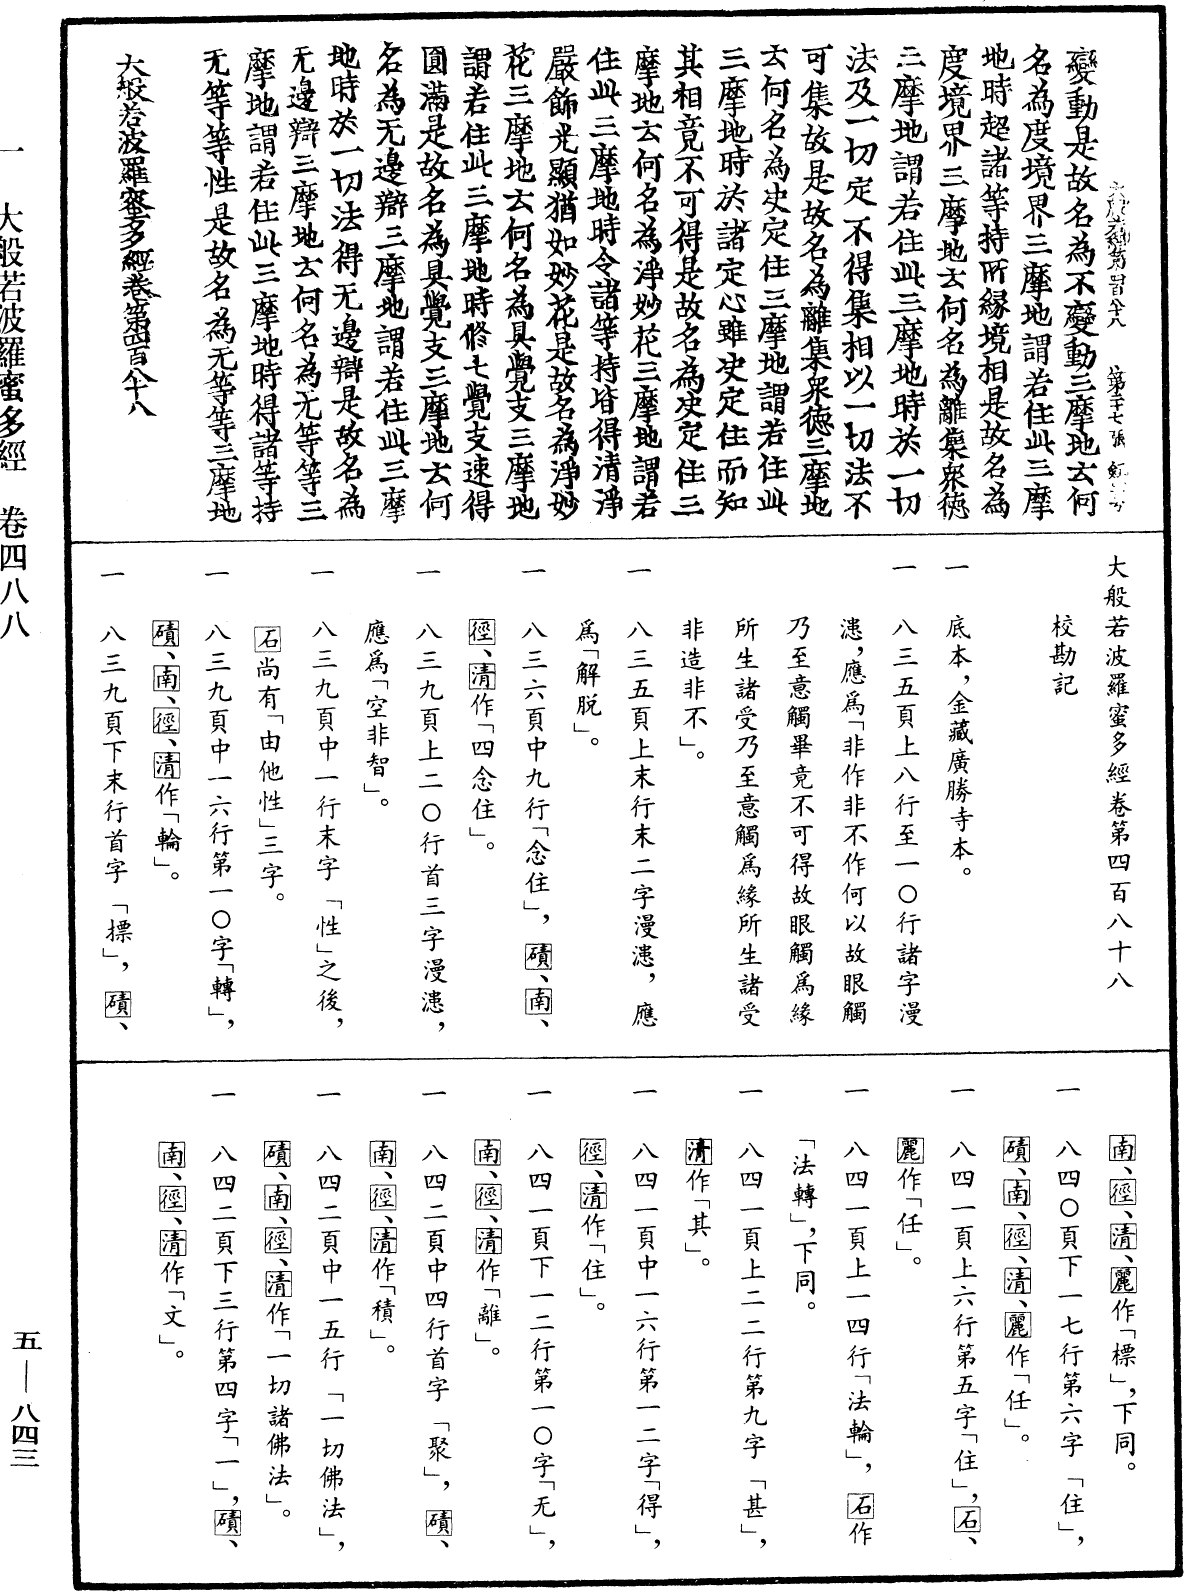 變動是故名為不變動三摩地云何
名為度境界三摩地謂若住此三摩
地時超諸等持所緣境相是故名為
度境界三摩地云何名為離集眾德
三摩地謂若住此三摩地時於一切
法及一切定不得集相以一切法不
可集故是故名為離集眾德三摩地
云何名為決定住三摩地謂若住此
三摩地時於諸定心雖決定住而知
其相竟不可得是故名為決定住三
摩地云何名為淨妙花三摩地謂若
住此三摩地時令諸等持皆得清淨
嚴飾光顯猶如妙花是故名為淨妙
花三摩地云何名為具覺支三摩地
謂若住此三摩地時修七覺支速得
圓滿是故名為具覺支三摩地云何
名為无邊辯三摩地謂若住此三摩
地時於一切法得无邊辯是故名為
无邊辯三摩地云何名為无等等三
摩地謂若住此三摩地時得諸等持
无等等性是故名為无等等三摩地
大般若波羅蜜多經卷第四百八十八
大般若波羅蜜多經卷第四百八十八
校勘記
一 底本，金藏廣勝寺本。
一 八三五頁上八行至一〇行諸字漫
漶，應爲「非作非不作何以故眼觸
乃至意觸畢竟不可得故眼觸爲緣
所生諸受乃至意觸爲緣所生諸受
非造非不」。
一 八三五頁上末行末二字漫漶，應
爲「解脱」。
一 八三六頁中九行「念住」，磧、南、
徑、清作「四念住」。
一 八三九頁上二〇行首三字漫漶，
應爲「空非智」。
一 八三九頁中一行末字「性」之後，
石尚有「由他性」三字。
一 八三九頁中一六行第一〇字「轉」，
磧、南、徑、清作「輪」。
一 八三九頁下末行首字「標」，磧、
南、徑、清、麗作「標」，下同。
一 八四〇頁下一七行第六字「住」，
磧、南、徑、清、麗作「任」。
一 八四一頁上六行第五字「住」，石、
麗作「任」。
一 八四一頁上一四行「法輪」，石作
「法轉」，下同。
一 八四一頁上二二行第九字「甚」，
清作「其」。
一 八四一頁中一六行第一二字「得」，
徑、清作「住」。
一 八四一頁下一二行第一〇字「无」，
南、徑、清作「離」。
一 八四二頁中四行首字「聚」，磧、
南、徑、清作「積」。
一 八四二頁中一五行「一切佛法」，
磧、南、徑、清作「一切諸佛法」。
一 八四二頁下三行第四字「一」，磧、
南、徑、清作「文」。
一 大般若波羅蜜多經 卷四八八
五—八四三